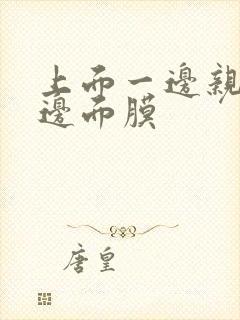 上而一邊親
邊而膜
唐皇